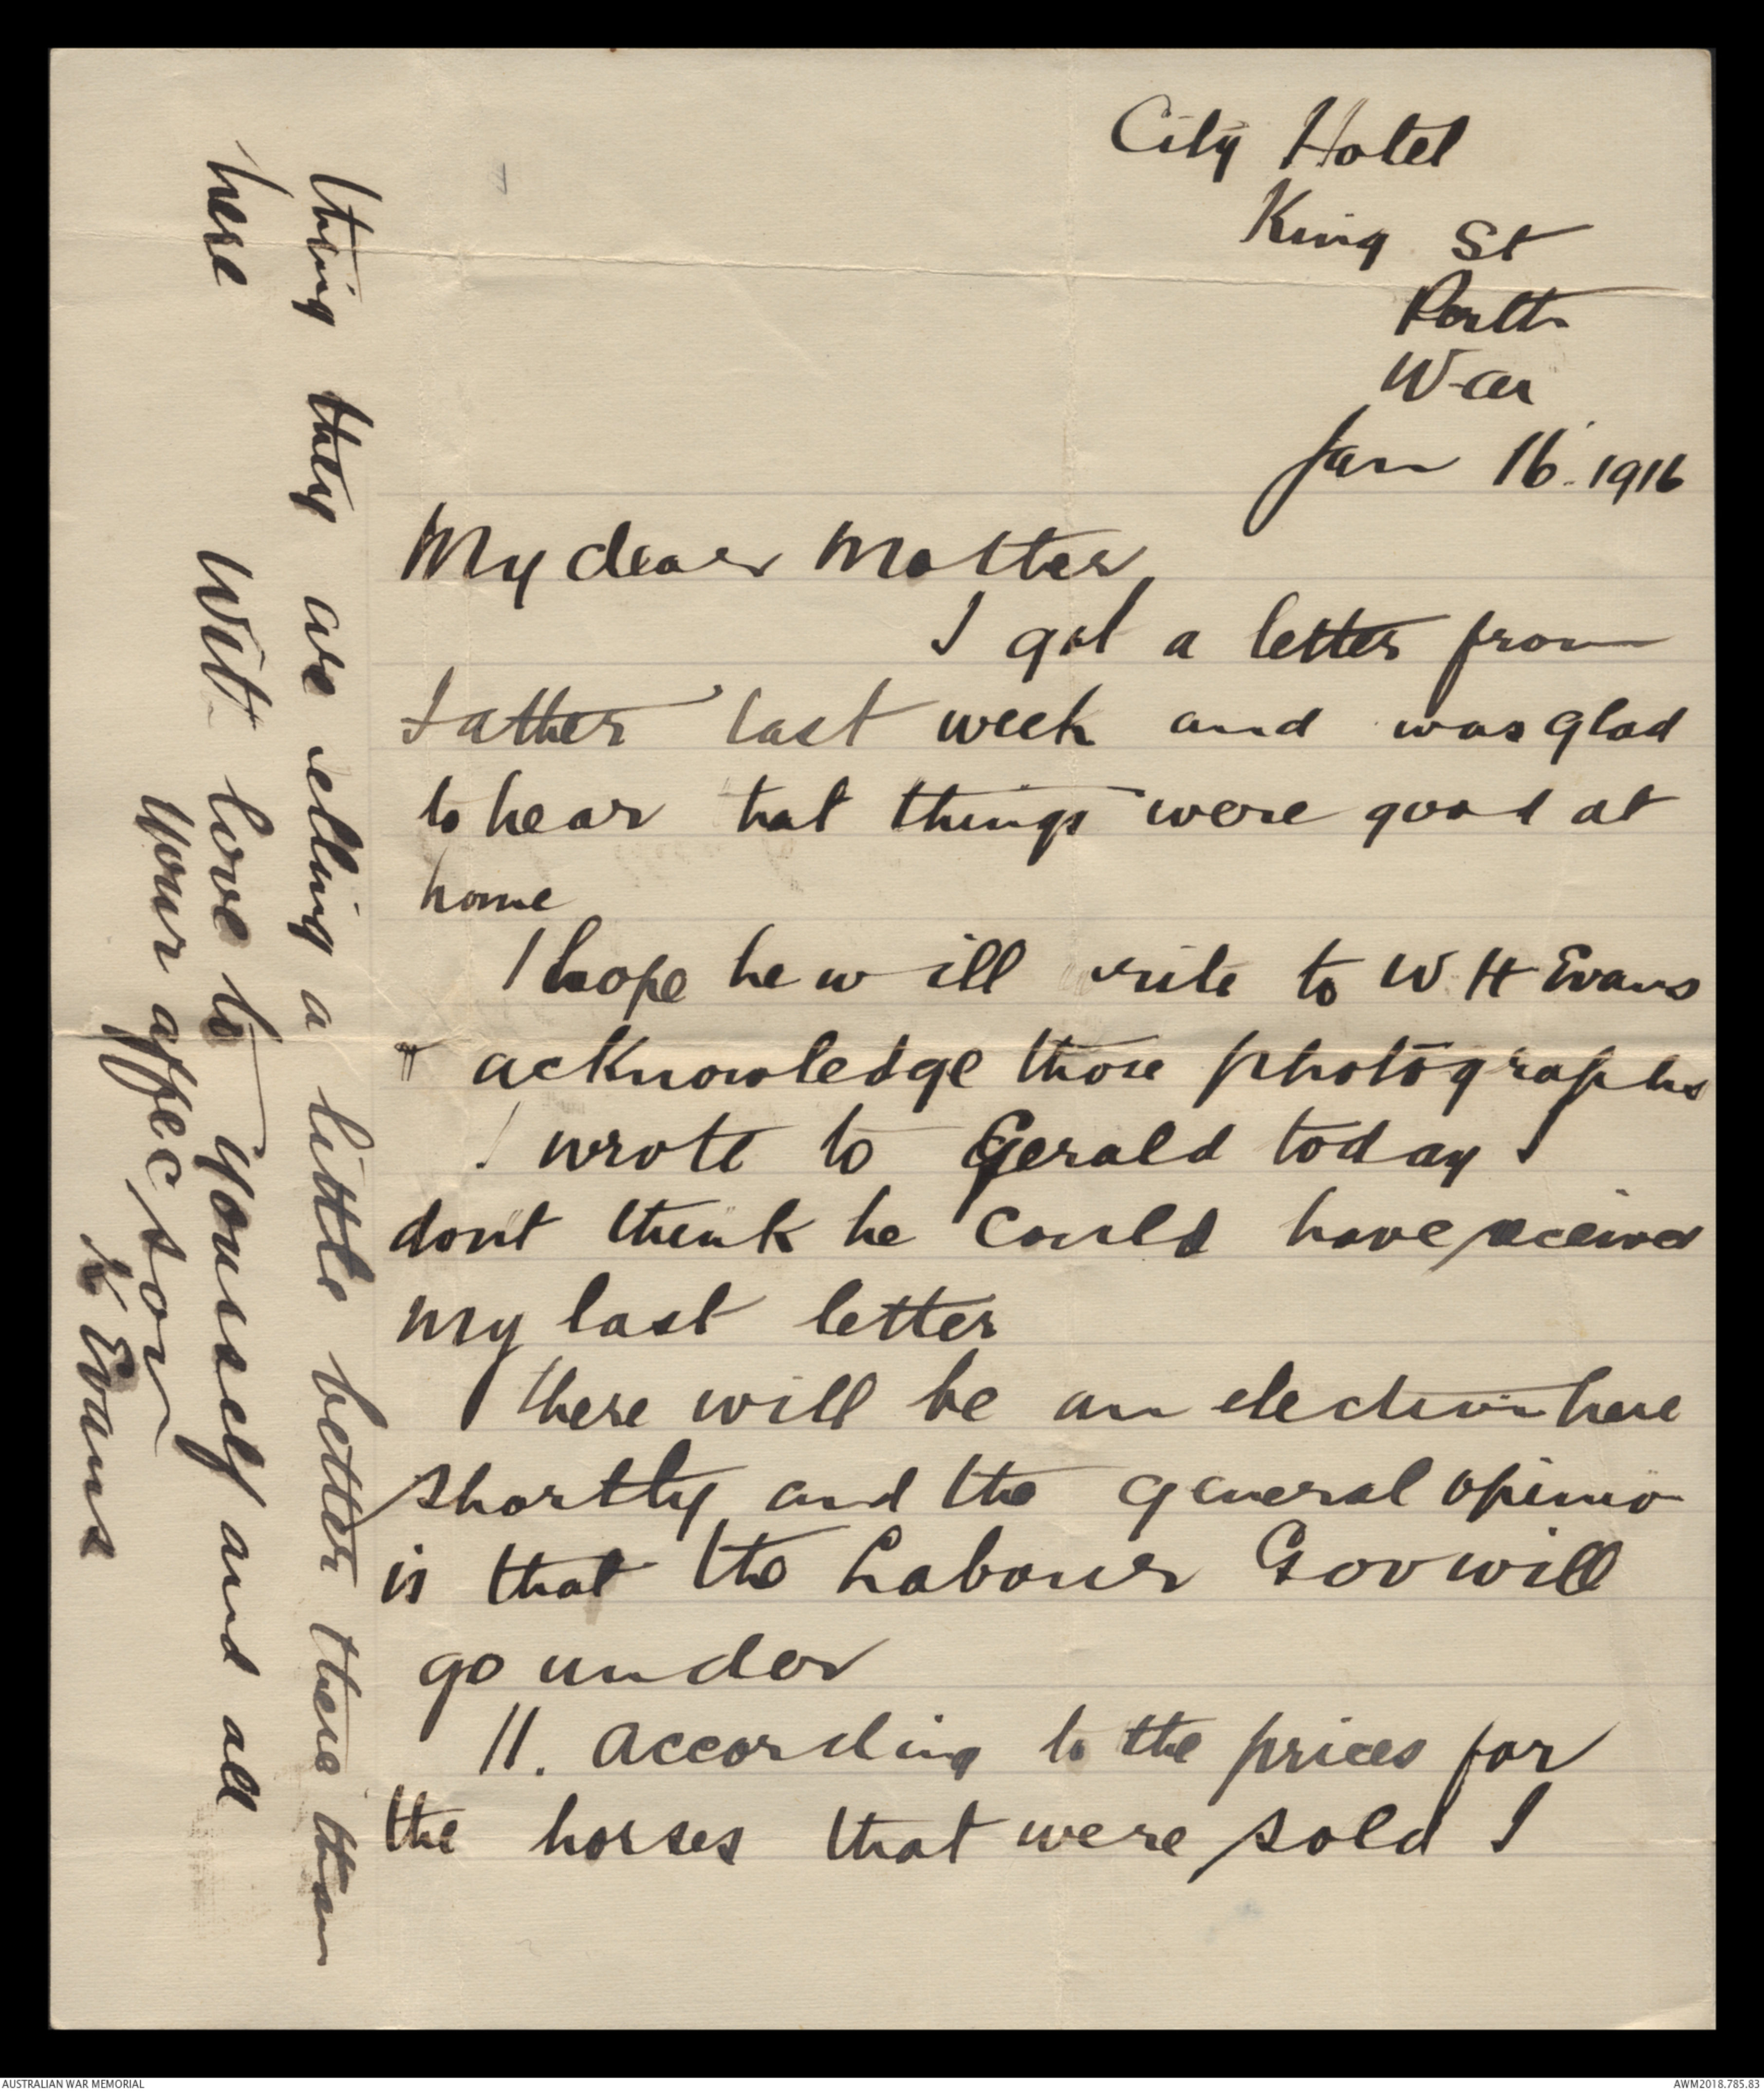 City Hotel
King St
Perth
W-au
Jan 16. 1916
My dear Mother
I got a letter from
Father last week and was glad
to hear that things were good at
home
I hope he will write to W. H Evans
& acknowledge those photographs
I wrote to Gerald today I
dont think he could have received
my last letter
There will be an election here
shortly and the general opinio
is that the Labour Gov will
go under
11. According to the prices for
the horses that were sold I
thing they are selling a little better there than
here
With love to yourself and all
Your affec son
K Evans
AUSTRALIAN WAR MEMORIAL
AWM2018.785.83